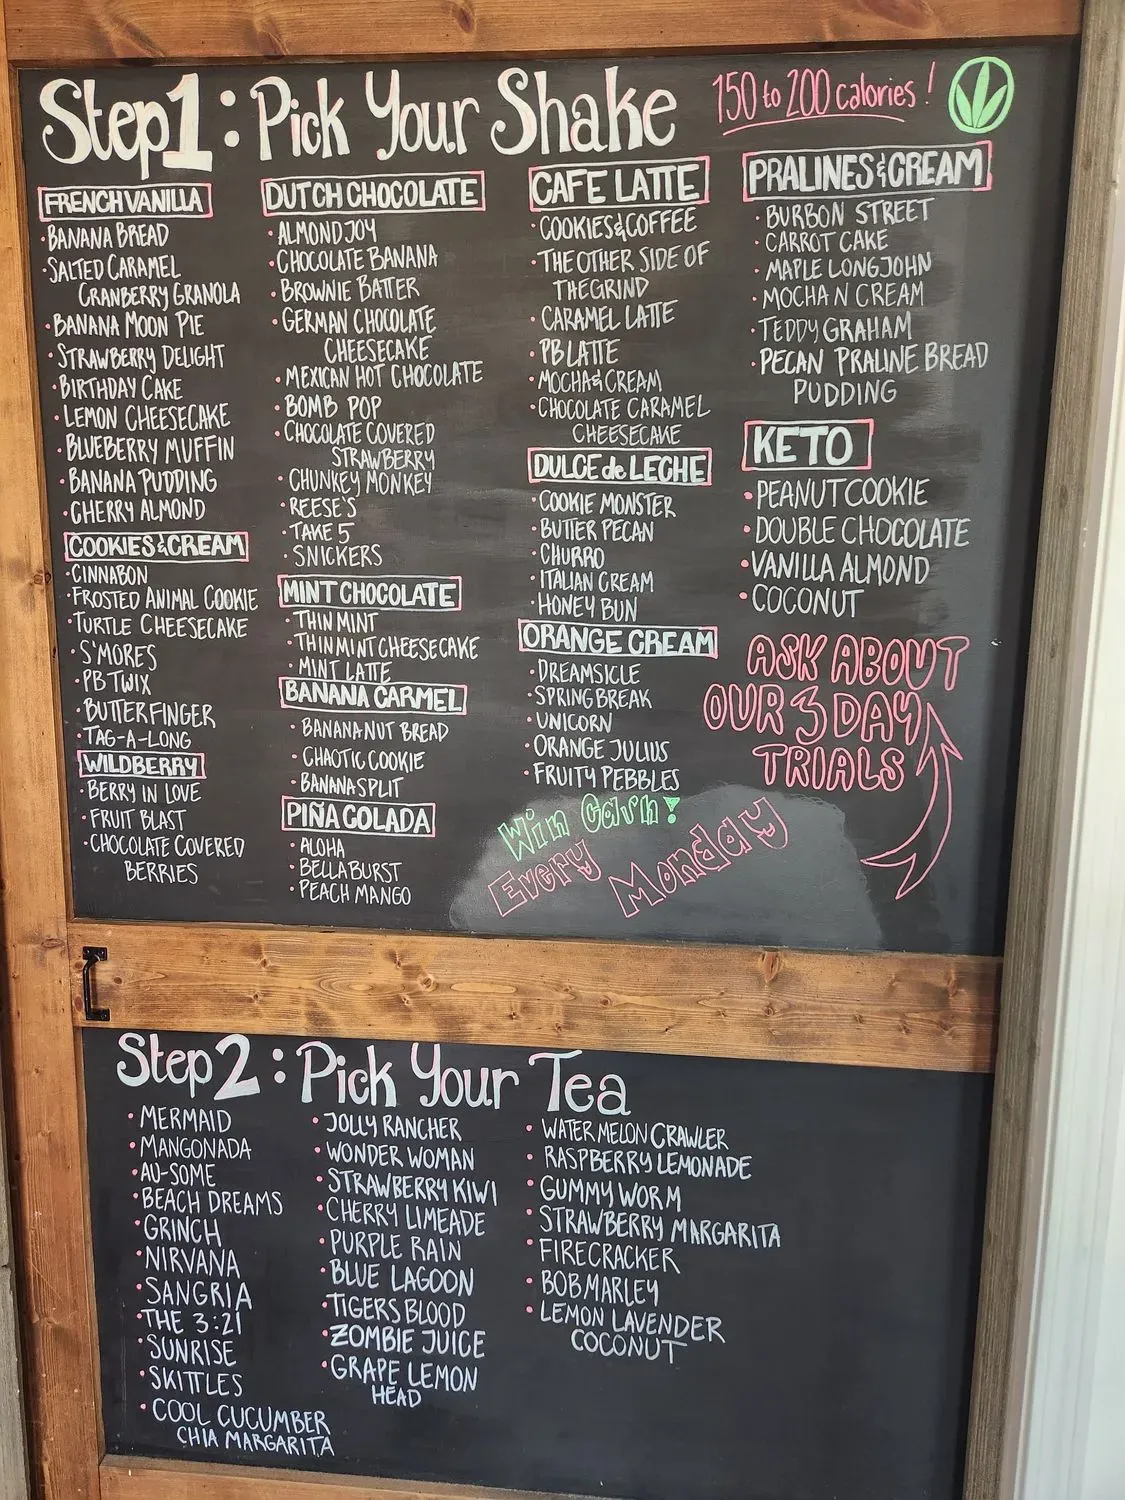 Step 1: Pick Your Shake
150 to 200 calories!
FRENCH VANILLA
· BANANA BREAD
· SALTED CARAMEL
CRANBERRY GRANOLA
· BANANA MOON PIE
· STRAWBERRY DELIGHT
· BIRTHDAY CAKE
· LEMON CHEESECAKE
· BLUEBERRY MUFFIN
· BANANA PUDDING
· CHERRY ALMOND
COOKIES & CREAM
· CINNABON
· FROSTED ANIMAL COOKIE
· TURTLE CHEESECAKE
· S'MORES
· PB TWIX
· BUTTERFINGER
· TAG-A-LONG
WILDBERRY
· BERRY IN LOVE
· FRUIT BLAST
· CHOCOLATE COVERED
BERRIES
DUTCH CHOCOLATE
· ALMOND JOY
· CHOCOLATE BANANA
· BROWNIE BATTER
· GERMAN CHOCOLATE
CHEESECAKE
· MEXICAN HOT CHOCOLATE
· BOMB POP
· CHOCOLATE COVERED
STRAWBERRY
· CHUNKEY MONKEY
· REESE'S
· TAKE 5
· SNICKERS
MINT CHOCOLATE
· THIN MINT
· THIN MINT CHEESECAKE
· MINT LATTE
BANANA CARMEL
· BANANA NUT BREAD
· CHAOTIC COOKIE
· BANANA SPLIT
PIÑA COLADA
· ALOHA
· BELLA BURST
· PEACH MANGO
CAFE LATTE
· COOKIES & COFFEE
· THE OTHER SIDE OF
THE GRIND
· CARAMEL LATTE
· PB LATTE
· MOCHA & CREAM
· CHOCOLATE CARAMEL
CHEESECAKE
DULCE de LECHE
· COOKIE MONSTER
· BUTTER PECAN
· CHURRO
· ITALIAN CREAM
· HONEY BUN
ORANGE CREAM
· DREAMSICLE
· SPRING BREAK
· UNICORN
· ORANGE JULIUS
· FRUITY PEBBLES
Win Cash!
Every Monday
PRALINES & CREAM
· BURBON STREET
· CARROT CAKE
· MAPLE LONGJOHN
· MOCHA N CREAM
· TEDDY GRAHAM
· PECAN PRALINE BREAD
PUDDING
KETO
· PEANUT COOKIE
· DOUBLE CHOCOLATE
· VANILLA ALMOND
· COCONUT
ASK ABOUT
OUR 3 DAY
TRIALS
Step 2: Pick Your Tea
· MERMAID
· MANGONADA
· AU-SOME
· BEACH DREAMS
· GRINCH
· NIRVANA
· SANGRIA
· THE 3:21
· SUNRISE
· SKITTLES
· COOL CUCUMBER
CHIA MARGARITA
· JOLLY RANCHER
· WONDER WOMAN
· STRAWBERRY KIWI
· CHERRY LIMEADE
· PURPLE RAIN
· BLUE LAGOON
· TIGERS BLOOD
· ZOMBIE JUICE
· GRAPE LEMON
HEAD
· WATERMELON CRAWLER
· RASPBERRY LEMONADE
· GUMMY WORM
· STRAWBERRY MARGARITA
· FIRECRACKER
· BOB MARLEY
· LEMON LAVENDER
COCONUT